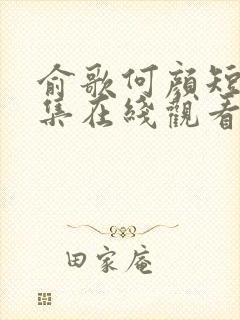 俞歌何顔短
集在綫觀看
田家庵